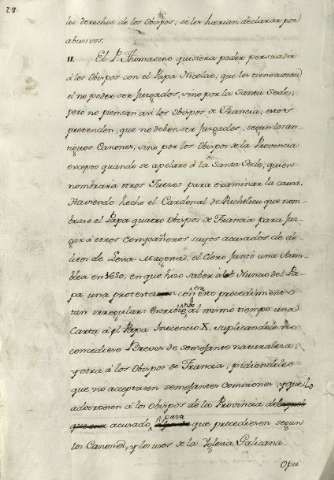 los derechos de los Obispos, se les hicieran declarar por
abusivos.
11. El P. Thomasino quisiera poder persuadir
à los Obispos con el Papa Nicolas, que les era ventajoso
el no poder ser Juzgados, sino por la Santa Sede;
pero no piensan asi los Obispos de Francia; estos
pretenden, que no deben ser Juzgados, segun los an-
tiguos Canones, sino por los Obispos de la Provincia
excepto quando se apelare à la Santa Sede, quien
nombrara otros Jueces para examinar la causa.
Haviendo hecho el Cardenal de Richelieu que nom-
brase el Papa quatro Obispos de Francia para Juz-
gar à otros compañeros suyos acusados de de-
lito de Lesa Magestad, el Clero juntò una Asam-
blea en 1650, en que hizo saber al Nuncio del Pa-
pa una protesta contra este procedimiento
tan irregular: escribiò al mismo tiempo una
Carta à el Papa Inocencio X. suplicandole no
concediese Breves de semejante naturaleza;
y otra à los Obispos de Francia, pidiendoles
que no acceptasen semejantes comisiones, y que lo
advirtiesen à los Obispos de la Provincia del
acusado, para que procediesen segun
los Canones, y los usos de la Iglesia Galicana.